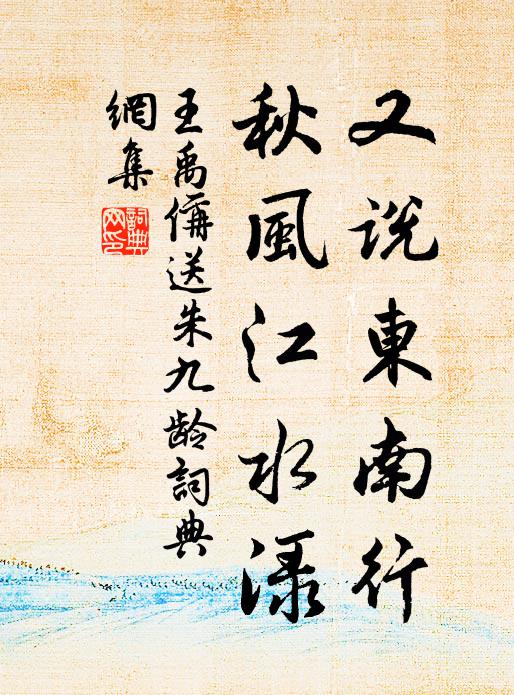 又說東南行
秋風江水渌
王禹偁送朱九齡詞典
網集
詞典
网印